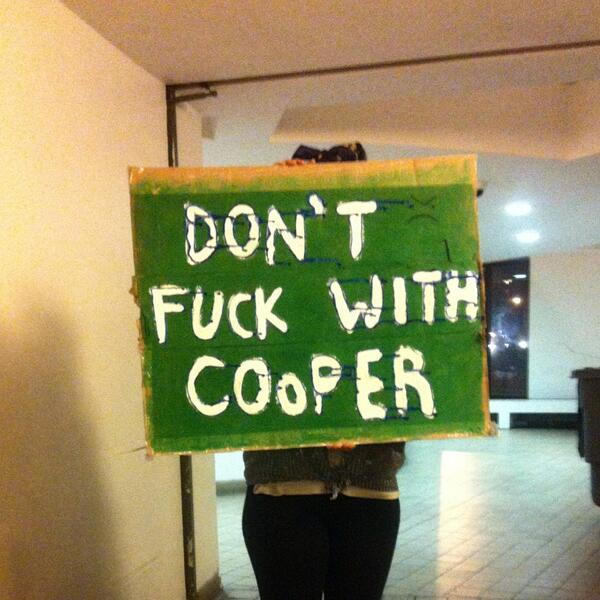 DON'T
FUCK WITH
COOPER